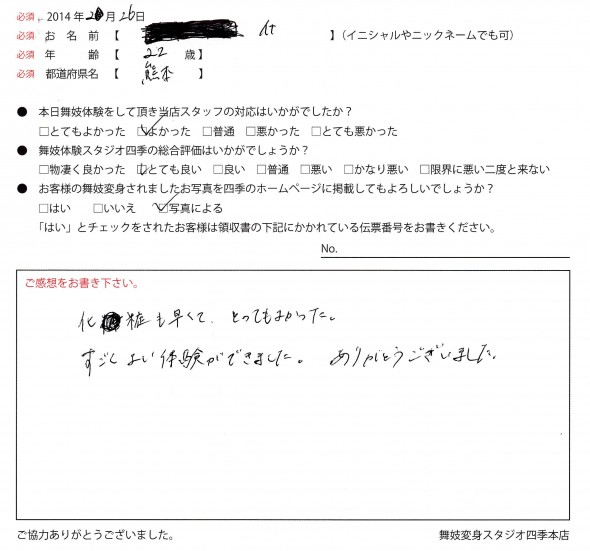 必須 2014年 月26日
必須 お名前【 】(イニシャルやニックネームでも可)
必須 年齢【 22 歳】
必須 都道府県名【 熊本 】
● 本日舞妓体験をして頂き当店スタッフの対応はいかがでしたか?
□とてもよかった ☑よかった □普通 □悪かった □とても悪かった
● 舞妓体験スタジオ四季の総合評価はいかがでしょうか?
□物凄く良かった ☑とても良い □良い □普通 □悪い □かなり悪い □限界に悪い二度と来ない
● お客様の舞妓変身されましたお写真を四季のホームページに掲載してもよろしいでしょうか?
□はい □いいえ ☑写真による
「はい」とチェックをされたお客様は領収書の下記にかかれている伝票番号をお書きください。
No.
ご感想をお書き下さい。
化粧も早くて、とってもよかった。
すごくよい体験ができました。 ありがとうございました。
ご協力ありがとうございました。 舞妓変身スタジオ四季本店